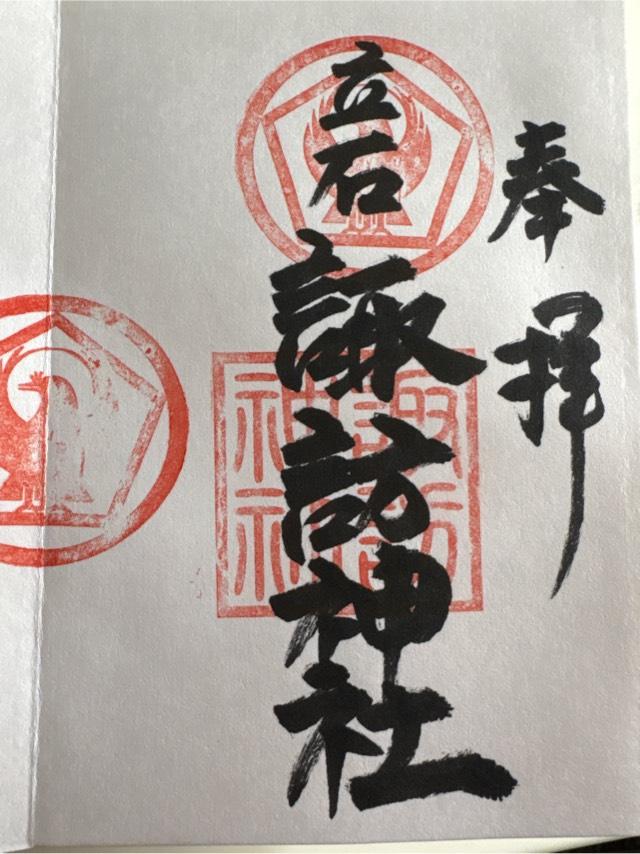 奉拝
立石
諏訪神社
諏訪
神社